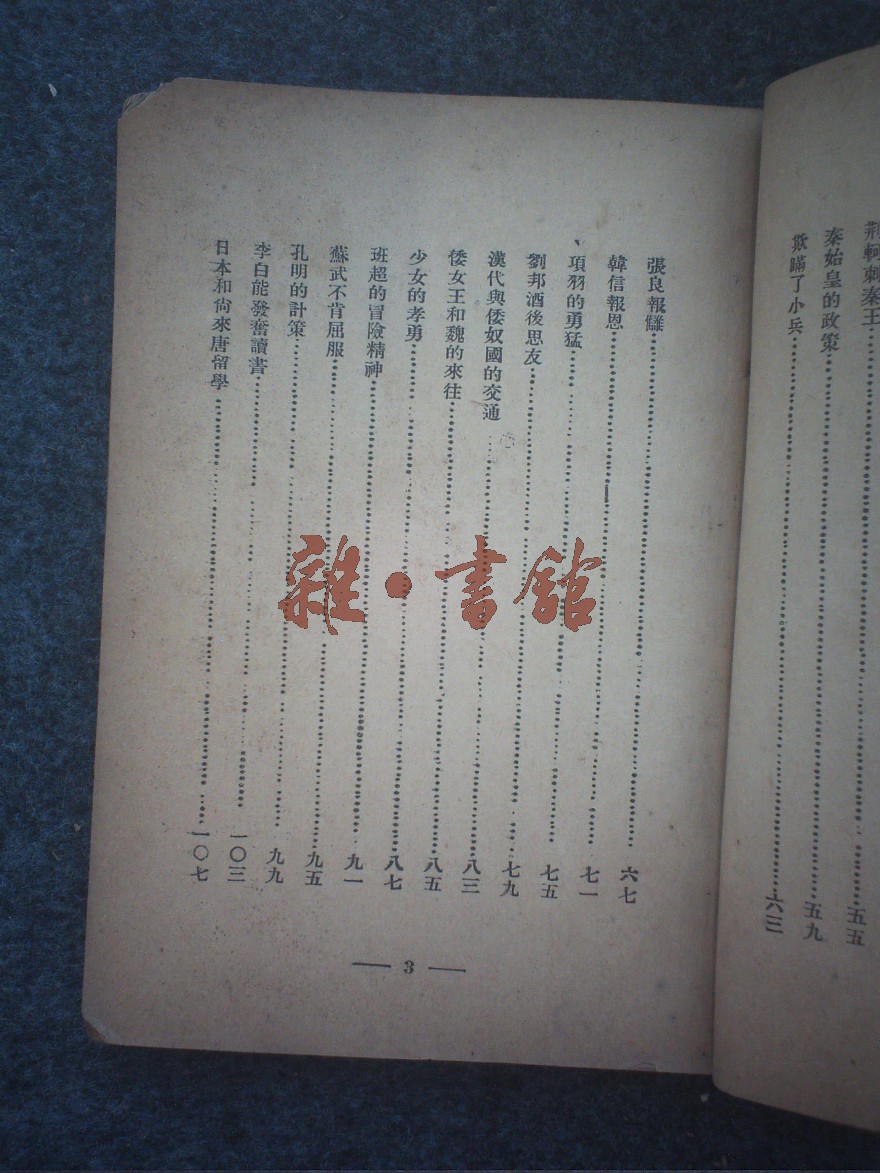 荆軻刺秦王……五五
秦始皇的政策……五九
欺瞞了小兵……六三
張良報讎……六七
韓信報恩……七一
、項羽的勇猛……七五
劉邦酒後思友……七九
漢代與倭奴國的交通……八三
倭女王和魏的來往……八五
少女的孝勇……八七
班超的冒險精神……九一
蘇武不肯屈服……九五
孔明的計策……九九
李白能發奮讀書……一〇三
日本和尙來唐留學……一〇七
— 3 —
雜·書館